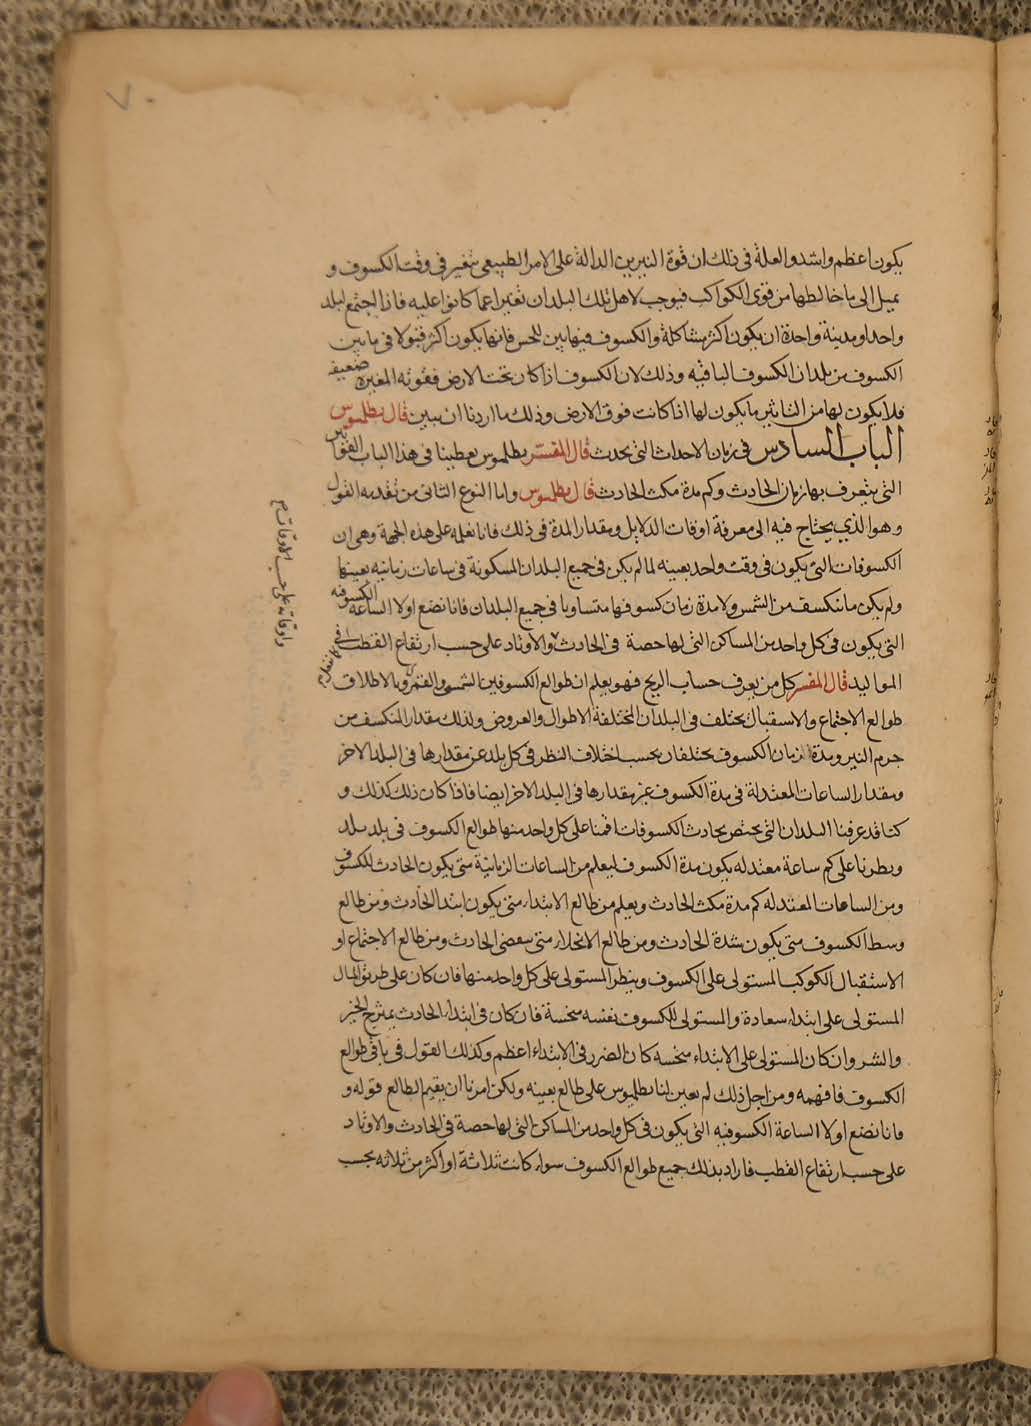 ٧٠
يكون اعظم واشد والعلة فى ذلك ان قوة النيرين الدالة على الامر الطبيعى تتغير فى وقت الكسوف و
يميل الى ما خالطها من قوى الكواكب فيوجب لاهل تلك البلدان تغيرا عما كانوا عليه فاذا اجتمع لبلد
واحد او مدينة واحدة ان يكون اكثر مشاكلة والكسوف فيها بين للحس فانها يكون اكثر قبولا فى ما بين
الكسوف من بلدان الكسوف الباقيه وذلك لان الكسوف اذا كان تحت الارض فقوته المغيره ضعيفه
فلا يكون لها من التاثير ما يكون لها اذا كانت فوق الارض وذلك ما اردنا ان نبين قال بطلميوس
الباب السادس فى زمان الاحداث التى يحدث قال المفسر بطلميوس يعطينا فى هذا الباب القوانين
التى يتعرف بها زمان الحادث وكم مدة مكث الحادث قال بطلميوس واما النوع الثانى من تقدمه القول
وهو الذي يحتاج فيه الى معرفة اوقات الدلايل ومقدار المدة فى ذلك فانا نعلمه على هذه الجهة وهى ان
الكسوفات التى يكون فى وقت واحد بعينه لما لم يكن فى جميع البلدان المسكونة فى ساعات زمانيه بعينها
ولم يكن ما ينكسف من الشمس ولا مدة زمان كسوفها متساويا فى جميع البلدان فانا نضع اولا الساعة الكسوفيه
التى يكون فى كل واحد من المساكن التى لها حصة فى الحادث والاوتاد على حسب ارتفاع القطب كما نعلم فى
المواليد قال المفسر كل من يعرف حساب الزيج فهو يعلم ان طوالع الكسوفين الشمسى والقمرى وبالاطلاق
طوالع الاجتماع والاستقبال يختلف فى البلدان المختلفة الاطوال والعروض وكذلك مقدار المنكسف من
جرم النير ومدة زمان الكسوف يختلفان بحسب اختلاف النظر فى كل بلد عن مقدارها فى البلد الاخر
ومقدار الساعات المعتدلة فى مدة الكسوف غير مقدارها فى البلد الاخر ايضا فاذا كان ذلك كذلك و
كنا قد عرفنا البلدان التى يختص بحادث الكسوفات اقمنا على كل واحد منها طوالع الكسوف فى بلد بلد
ونظرنا على كم ساعة معتدله يكون مدة الكسوف ليعلم من الساعات الزمانية متى يكون الحادث للكسوف
ومن الساعات المعتدله كم مدة مكث الحادث ويعلم من طالع الابتداء متى يكون ابتدا الحادث ومن طالع
وسط الكسوف متى يكون شدة الحادث ومن طالع الانجلاء متى ينقضى الحادث ومن طالع الاجتماع او
الاستقبال الكوكب المستولى على الكسوف وينظر المستولى على كل واحد منها فان كان على طريق المثال
المستولى على ابتداء سعادة والمستولى للكسوف نفسه منحسة فان كان فى ابتداء الحادث يمتزج الخير
والشر وان كان المستولى على الابتداء منحسه كان الضرر فى الابتداء اعظم وكذلك القول فى باقى طوالع
الكسوف فافهمه ومن اجل ذلك لم يعين لنا بطلميوس على طالع بعينه ولكن امرنا ان نقيم الطالع قوله و
فانا نضع اولا الساعة الكسوفيه التى يكون فى كل واحد من المساكن التى لها حصة فى الحادث والاوتاد
على حسب ارتفاع القطب فاراد بذلك جميع طوالع الكسوف سواء كانت ثلاثة او اكثر من ثلاثه بحسب
واوقاته على حسب الاوقات